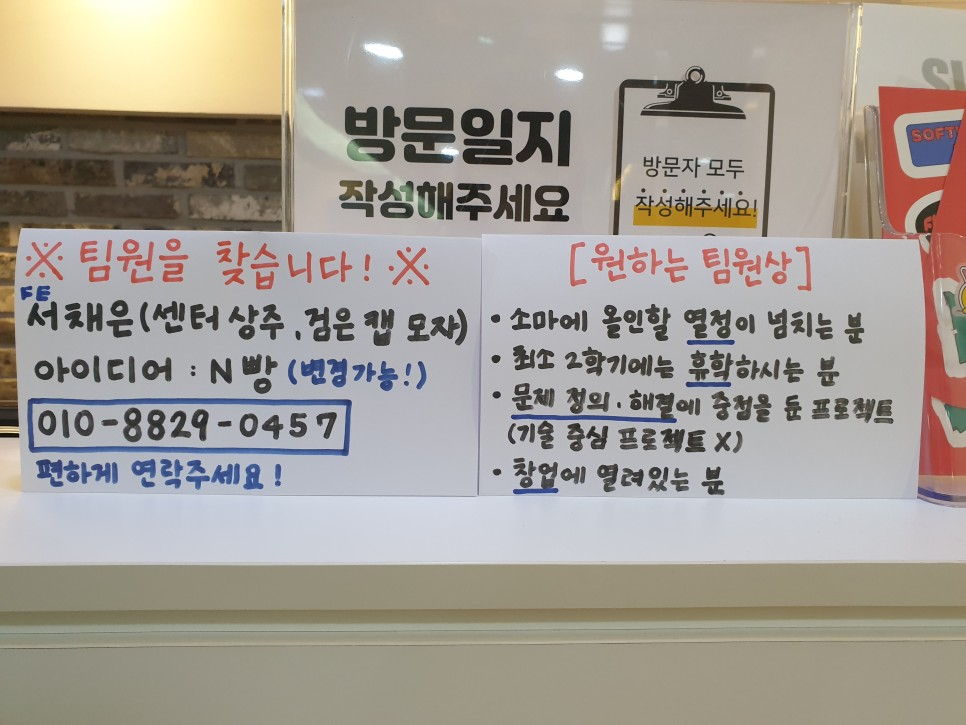 방문일지
작성해주세요
방문자 모두
작성해주세요!
SOFT
※ 팀원을 찾습니다! ※
FE
서채은(센터 상주, 검은 캡 모자)
아이디어 : N빵 (변경가능!)
010-8829-0457
편하게 연락주세요!
[원하는 팀원상]
• 소마에 올인할 열정이 넘치는 분
• 최소 2학기에는 휴학하시는 분
• 문제 정의·해결에 중점을 둔 프로젝트
(기술 중심 프로젝트 X)
• 창업에 열려있는 분